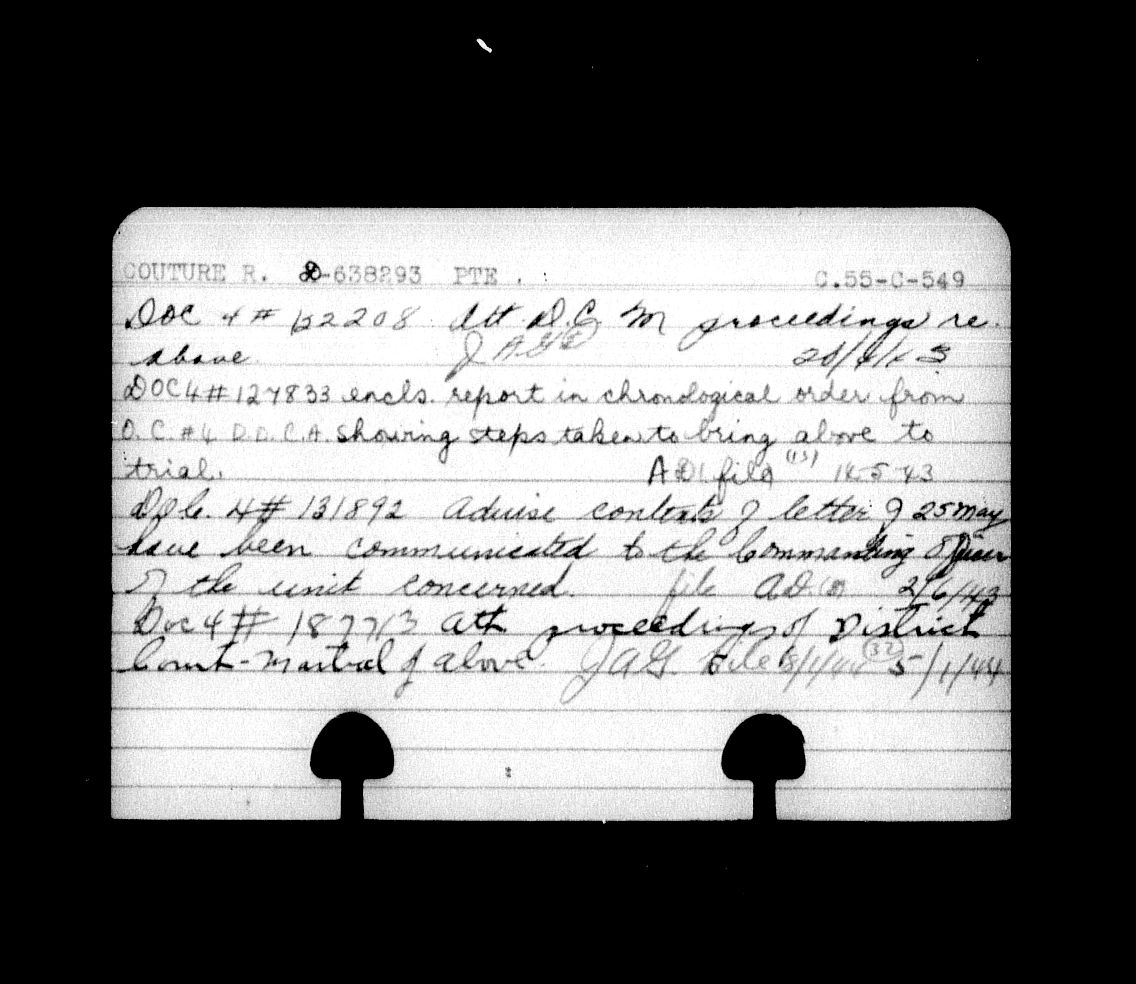 COUTURE R. D-638293 PTE . C.55-C-549
DOC 4 # 122208 Att. D.C.M proceedings re.
above. JAG 20/4/43
DOC 4 # 127833 encls. report in chronological order from
O.C. #4 D.D.C.A. showing steps taken to bring above to
trial. A.D.1. file (13) 14-5-43
Doc. 4# 131892 Advise contents of letter of 25 May
have been communicated to the Commanding Officer
of the unit concerned. file A.D. 2/6/43
Doc 4 # 187713 Att proceedings of District
Court-Martial of above. JAG. File (32) 5/1/44